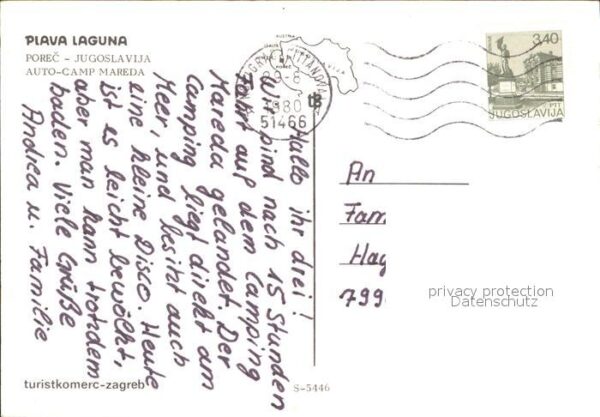 PLAVA LAGUNA
POREČ – JUGOSLAVIJA
AUTO-CAMP MAREDA
Hallo ihr drei!
Wir sind nach 15 Stunden
Fahrt auf dem Camping
Mareda gelandet. Der
Camping liegt direkt am
Meer, und besitzt auch
eine kleine Disco. Heute
ist es leicht bewölkt,
aber man kann trotzdem
baden. Viele Grüße
Andica u. Familie
turistkomerc-zagreb
S-5446
1980
51466
3,40
PTT
JUGOSLAVIJA
An
Fam
Hag
799
privacy protection
Datenschutz